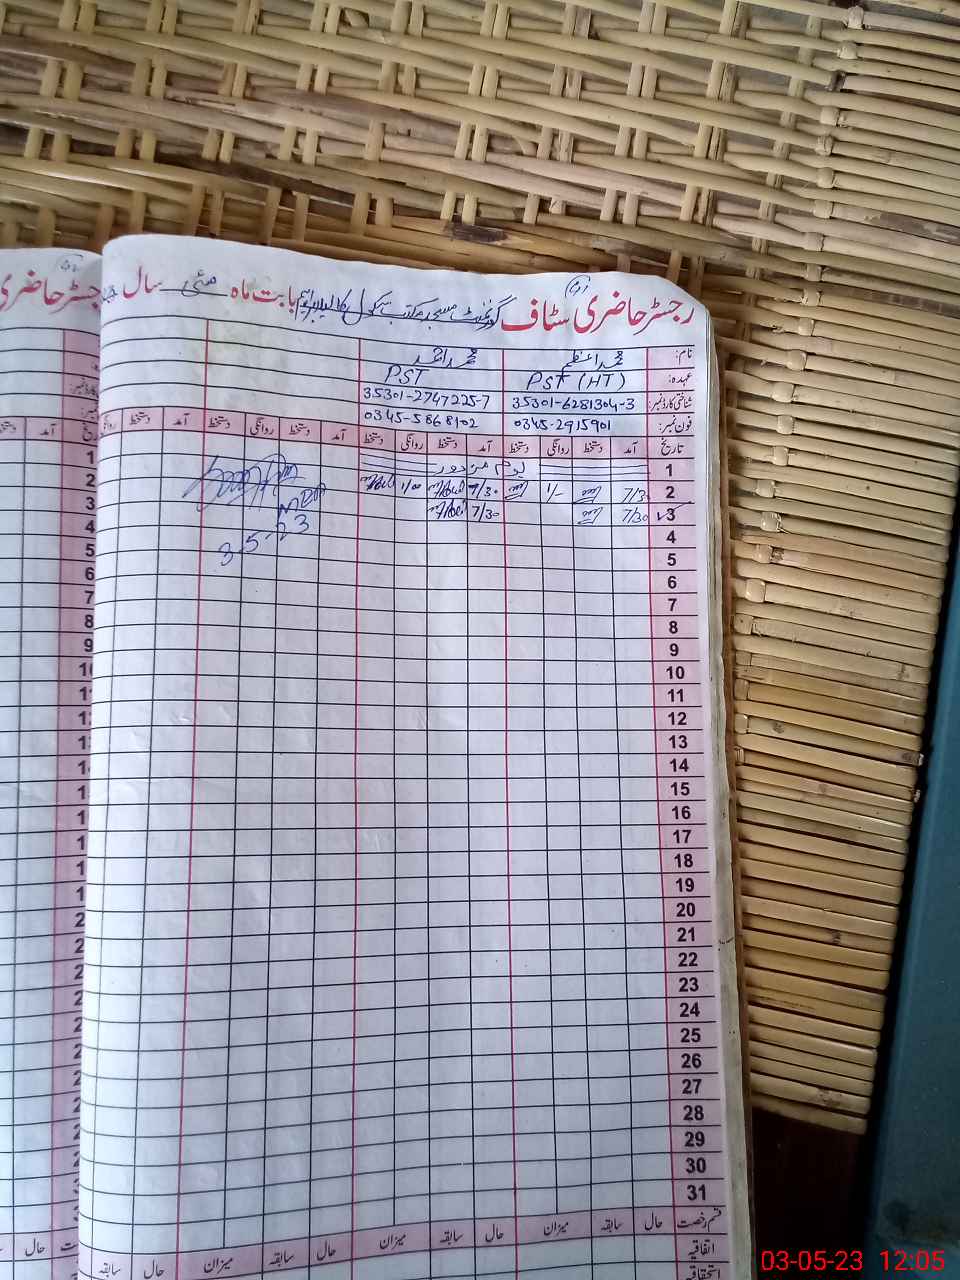 رجسٹر حاضری سٹاف گورنمنٹ مسجد مکتب سکول بابت ماہ مئی سال
نام: محمد اعظم محمد احمد
عہدہ: PST (HT) PST
شناختی کارڈ نمبر: 35301-6281304-3 35301-2747225-7
فون نمبر: 0345-2915901 0345-5868102
تاریخ آمد دستخط روانگی دستخط آمد دستخط روانگی دستخط آمد دستخط روانگی دستخط آمد دستخط
1 یوم مزدور
2 7/30 1/- 7/30 1/0
3 7/30 7/30
3-5-23
4
5
6
7
8
9
10
11
12
13
14
15
16
17
18
19
20
21
22
23
24
25
26
27
28
29
30
31
قسم رخصت حال سابقہ میزان حال سابقہ میزان حال سابقہ میزان حال سابقہ
اتفاقیہ
استحقاقیہ
رجسٹر حاضری
آمد دستخط
1
2
3
4
5
6
7
8
9
حال
03-05-23 12:05